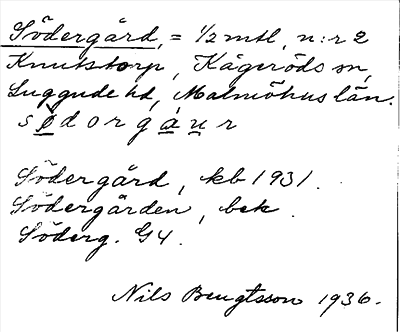 Södergård, = 1/2 mtl, n:r 2
Knutstorp, Kågeröds sn,
Luggude hd, Malmöhus län.
södorgáur
Södergård, kb 1931.
Södergården, bek.
Söderg. G4.
Nils Bengtsson 1936.